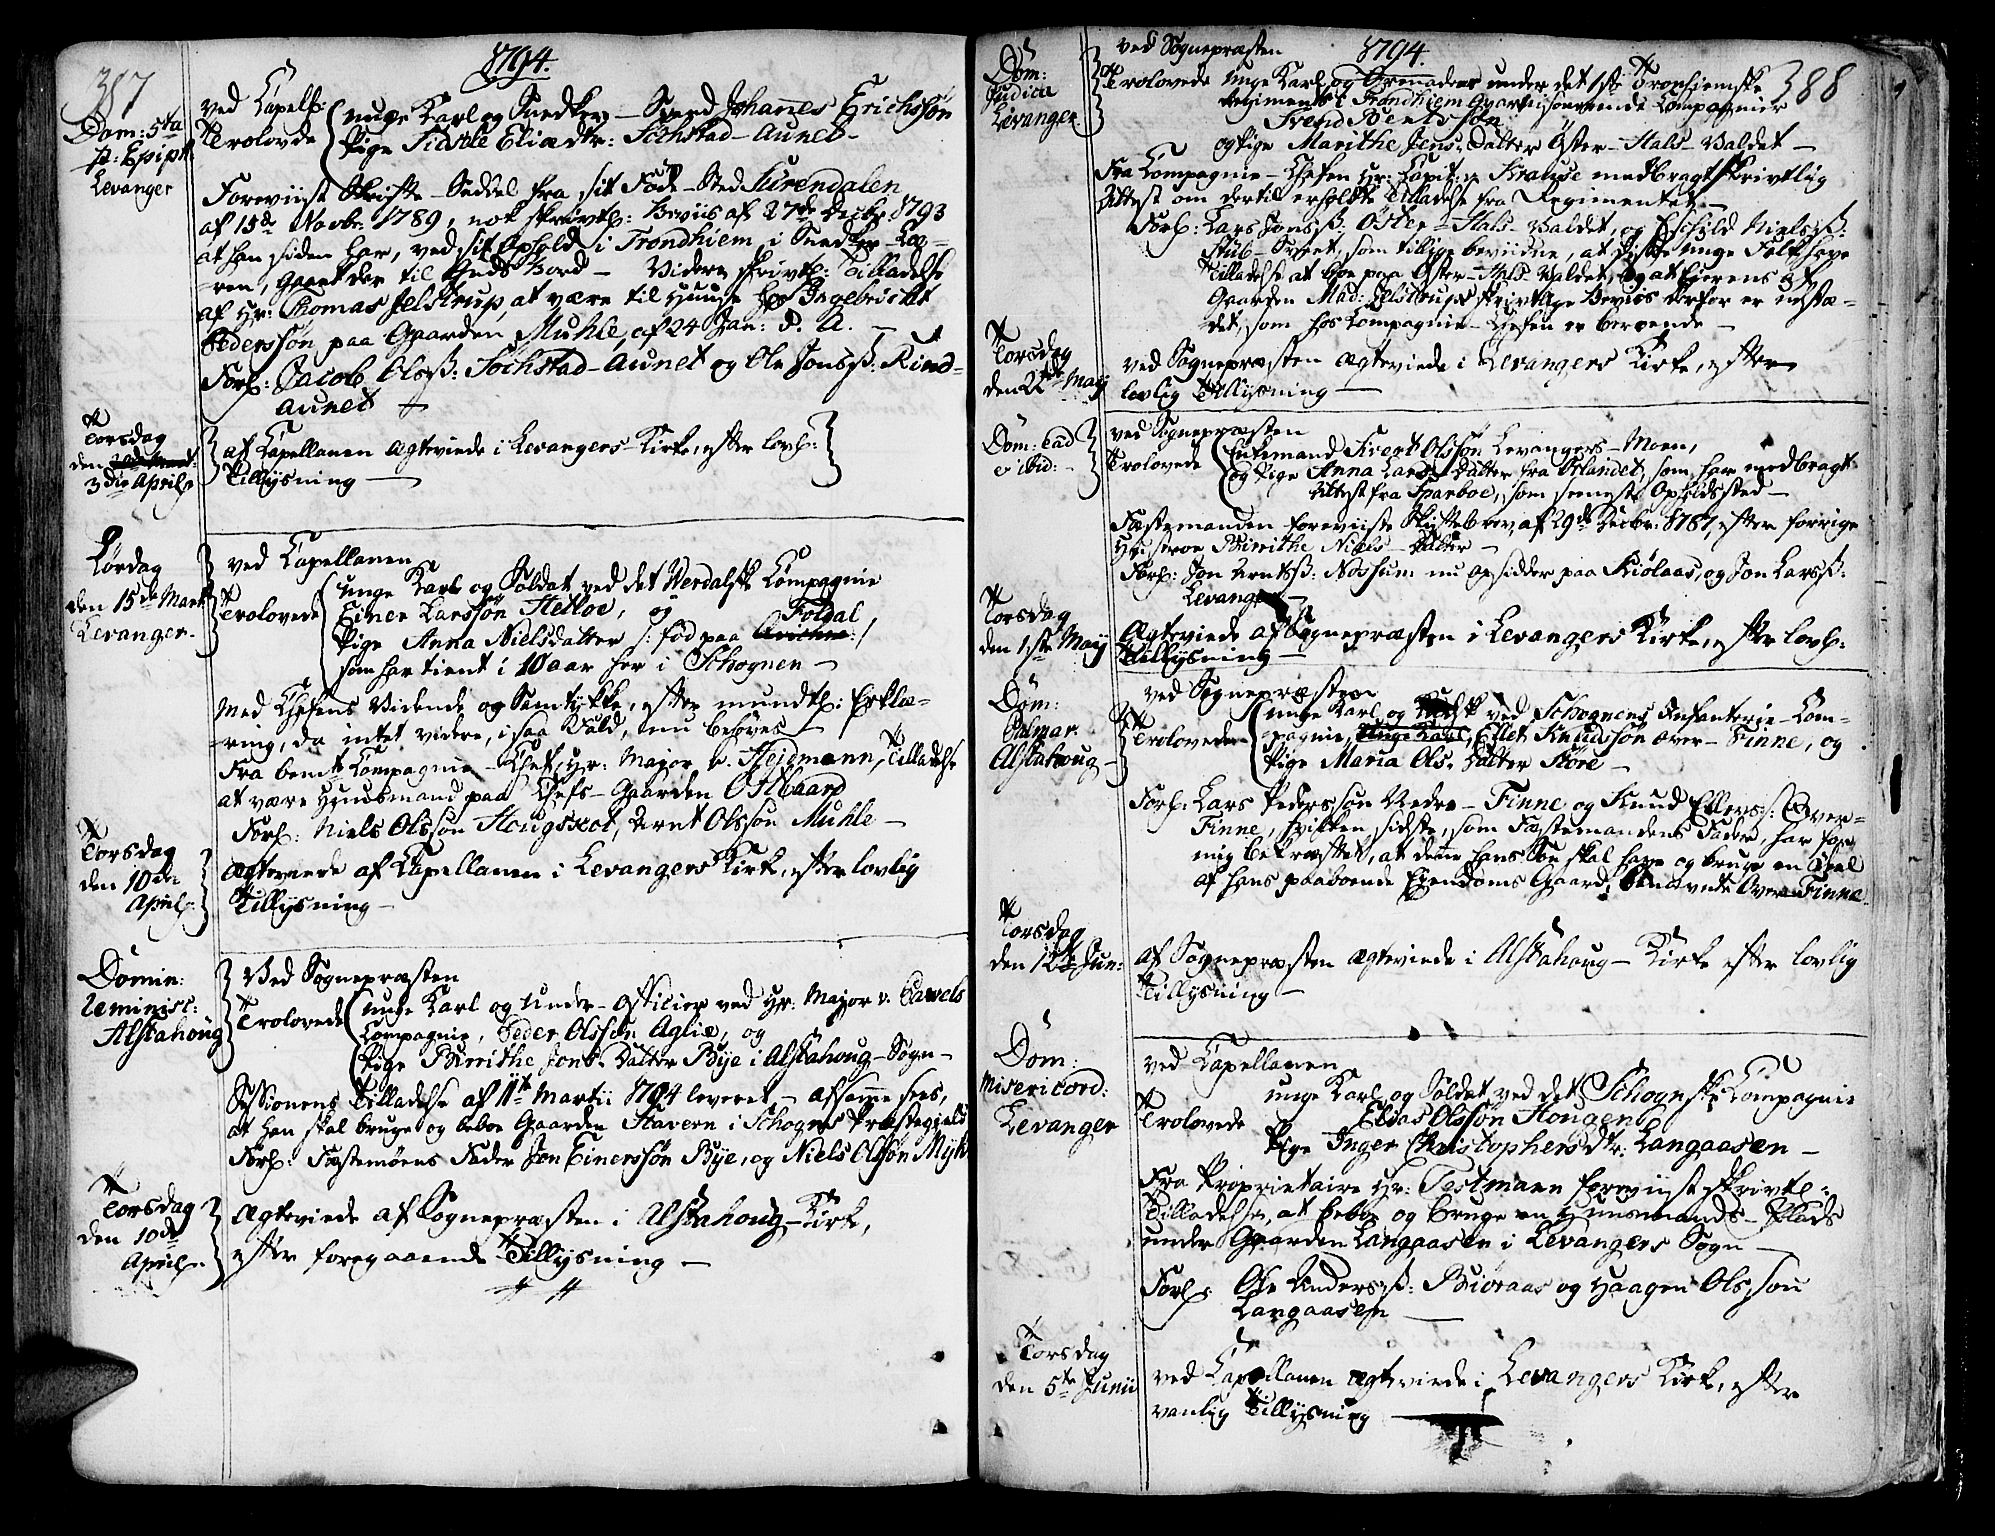 387
1794.
Dom: 5ta
p: Epiph:
Levanger
ved Capell:
Trolovede
unge Karl og Snedker-Svend Johanes Erichssøn
Pige Sidsele Eliædtr: Sochstad-Aunet-
Foreviist Skrifte-Seddel fra sit Føde-Sted Surendalen
af 15de Novbr: 1789, nok skrivtl: Beviis af 27de Decbr 1793
at han siden har, ved sit Ophold i Trondhiem, i Snedker-Læ-
ren, gaaet der til Guds Bord - Videre skrivtl: Tilladelse
af Hr: Thomas Jelstrup, at være til Huuse hos Ingebricht
Pederssøn paa Gaarden Muhle, af 24 Jan: d. A. -
Forl: Jacob Olsß: Sochstad-Aunet og Ole Jonsß: Rind-
aunet -
Torsdag
den
3die April:
af Capellanen Ægteviede i Levangers-Kirke, efter lovl:
Tillysning -
Lørdag
den 15de Marti
Levanger.
ved Capellanen
Trolovede
unge Karl og Soldat ved det Verdalsk Compagnie
Einer Larssøn Hetloe, og
Pige Anna Nielsdatter /: fød paa Foldal :/
som har tient i 10 aar her i Schognen -
Med Chefens Vidende og Samtykke, efter mundtl: Erklæ-
ring, da intet videre, i saa Fald, nu behøves -
Fra bemte Compagnie-Chef, Hr: Major v. Hejemann, Tilladelse
at være Huusmand paa Chefs-Gaarden Ostbaard
Forl: Niels Olssøn Hougsxot, Arnt Olssøn Muhle -
Torsdag
den 10de
April:
Ægteviede af Capellanen i Levangers Kirke, efter lovlig
Tillysning -
Domin:
Reminisc:
Alstahoug
Ved Sognepræsten
Trolovede
unge Karl og Under-Officier ved Hr: Major v. Cawels
Compagnie, Peder Olssøn Aglie, og
Pige Birrithe Jons-Datter Bye i Alstahoug-Sogn-
Sessionens Tilladelse af 11te Martii 1794 leveret, - af samme sees,
at Han skal bruge og beboe Gaarden Havern i Schognes Præstegield
Forl: Fæstemøens Fader Jon Einerssøn Bye, og Niels Olssøn Mykl
Torsdag
den 10de
April:
Ægteviede af Sognepræsten i Alstahoug-Kirke,
efter foregaaende Tillysning -
388
1794.
Dom:
Judica
Levanger
ved Sognepræsten
Trolovede unge Karl og Grenadeer under det 1ste Tronhiemske
Regiments i Trondhiem Guarnisonerende Compagnier
Svend Bentssøn
og Pige Marithe Jens-Datter Øster-Hals-Valdet -
Fra Compagnie-Chefen Hr: Capit: v Krause medbragt skrivtlig
Attest om dertil erholdte Tilladelse fra Regimentet -
Forl: Lars Jonsß: Øster-Hals-Valdet, og Eschild Nielsß:
Stub-Sveet, som tillige bevidne, at disse unge Folk have
Tilladelse at boe paa Øster-Hals Valdet, og at Eierens af
Gaarden Mad: Jelstrups skrivtlige Beviis derfor er udstæ-
det, som hos Compagnie-Chefen er beroende -
Torsdag
den 22de Maij
ved Sognepræsten Ægteviede i Levangers Kirke, efter
lovlig Tillysning -
Dom: ead
ibid: -
ved Sognepræsten
Trolovede
Enkemand Sivert Olssøn Levangers-Moen,
og Pige Anna Lars-Datter fra Ørlandet, som har medbragt
Attest fra Sparboe, som seeneste Opholdssted -
Fæstemanden foreviiste Skiftebrev, af 29de Decbr: 1787, efter forrige
Hustroe Birrithe Niels-Datter -
Forl: Jon Arntsß: Nossum nu opsidder paa Kiølaas, og Jon Larsß:
Levanger -
Torsdag
den 1ste Maij
Ægteviede af Sognepræsten i Levangers Kirke, efter lovl:
Tillysning -
Dom:
Palmar
Alstahoug -
ved Sognepræsten
Trolovede
unge Karl og ved Schognens Infanterie-Com-
pagnie, Ellet Knudssøn Over-Finne, og
Pige Maria Ols-Datter Hore -
Forl: Lars Pederssøn Nedre-Finne og Knud Ellersß: Over-
Finne, hvilken sidste, som Fæstemandens Fader, har for
mig bekræftet, at denne hans Søn skal have og bruge en Deel
af hans paaboende Eiendoms Gaard, benævnte Over-Finne.
Torsdag
den 12te Jun:
af Sognepræsten Ægteviede i Alstahoug-Kirke efter lovlig
Tillysning -
Dom:
Misericord:
Levanger
ved Capellanen
Trolovede
unge Karl og Soldat ved det Schognske Compagnie
Elias Olssøn Hougen
Pige Inger Christophersdtr: Langaasen -
Fra Proprietaire Hr: Testmann foreviist skrivtl:
Tilladelse, at beboe og bruge en Huusmands-Plads
under Gaarden Langaasen i Levangers Sogn -
Forl: Ole Andersß: Buøraas og Haagen Olssøn
Langaasen -
Torsdag
den 5te Junii
ved Capellanen Ægteviede i Levangers Kirke, efter
vanlig Tillysning -